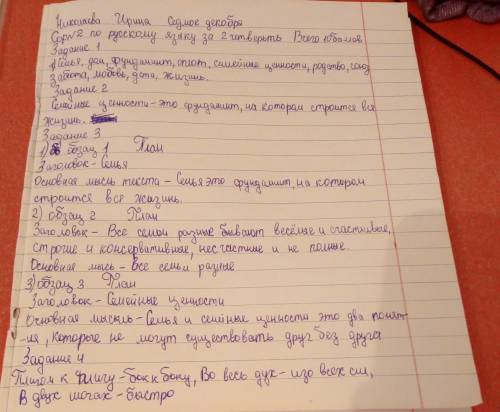 Николаева Ирина Седмое декабря
Сор№2 по русскому языку за 2 четверть Всего 10баллов
Задание 1
1) Семья, дом, фундамент, оплот, семейные ценности, родство, союз
Забота, любовь, дети, жизнь.
Задание 2
Семейные ценности - это фундамент, на котором строится вся
жизнь.
Задание 3
1) Абзац 1 План
Заголовок - Семья
Основная мысль текста - Семья это фундамент, на котором
строится вся жизнь.
2) абзац 2 План
Заголовок - Все семьи разные бывают весёлые и счастливые,
строгие и консервативные, несчастные и не полные.
Основная мысь - Все семьи разные
3) абзац 3 План
Заголовок - Семейные ценности
Основная мысль - Семья и семейные ценности это два понят-
-ия, которые не могут существовать друг без друга
Задание 4
Плигом к плигу - бок к боку, Во весь дух - изо всех сил,
В двух шагах - быстро